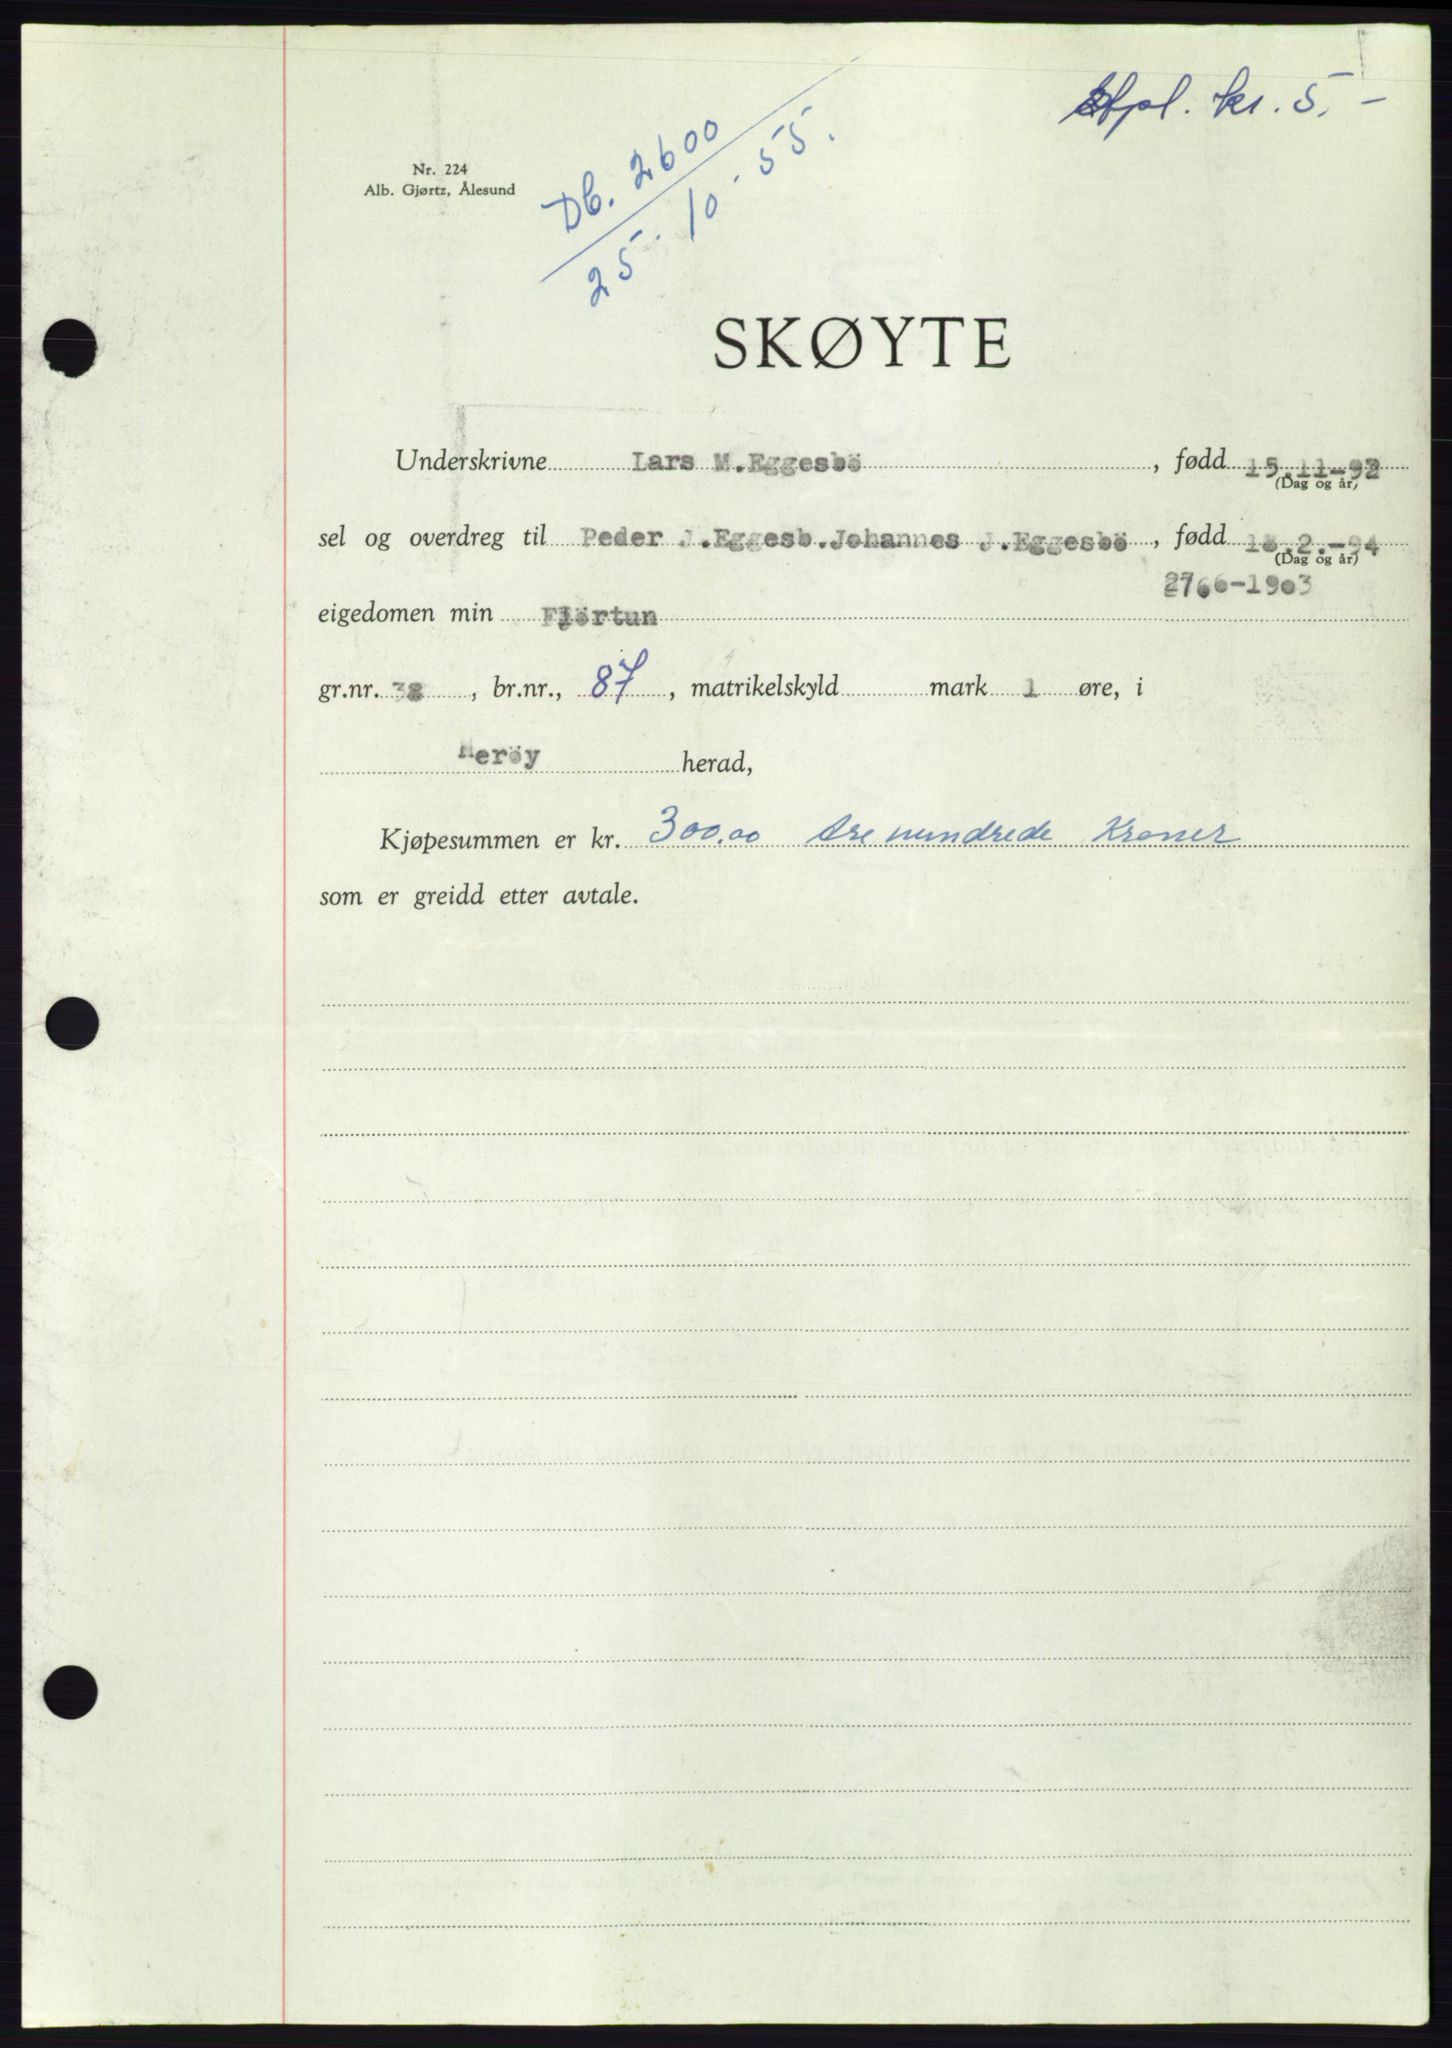 Stpl. kr. 5,-
Db. 2600
25-10-55.
Nr. 224
Alb. Gjørtz, Ålesund
SKØYTE
Underskrivne Lars M.Eggesbö, fødd 15.11-92
(Dag og år)
sel og overdreg til Peder J.Eggesb.Johannes J.Eggesbö, fødd .2.-94
(Dag og år)
276-1903
eigedomen min Fjörtun
gr.nr. 38, br.nr., 87, matrikelskyld mark 1 øre, i
Heröy herad,
Kjøpesummen er kr. 300.00 tre hundrede Kroner
som er greidd etter avtale.